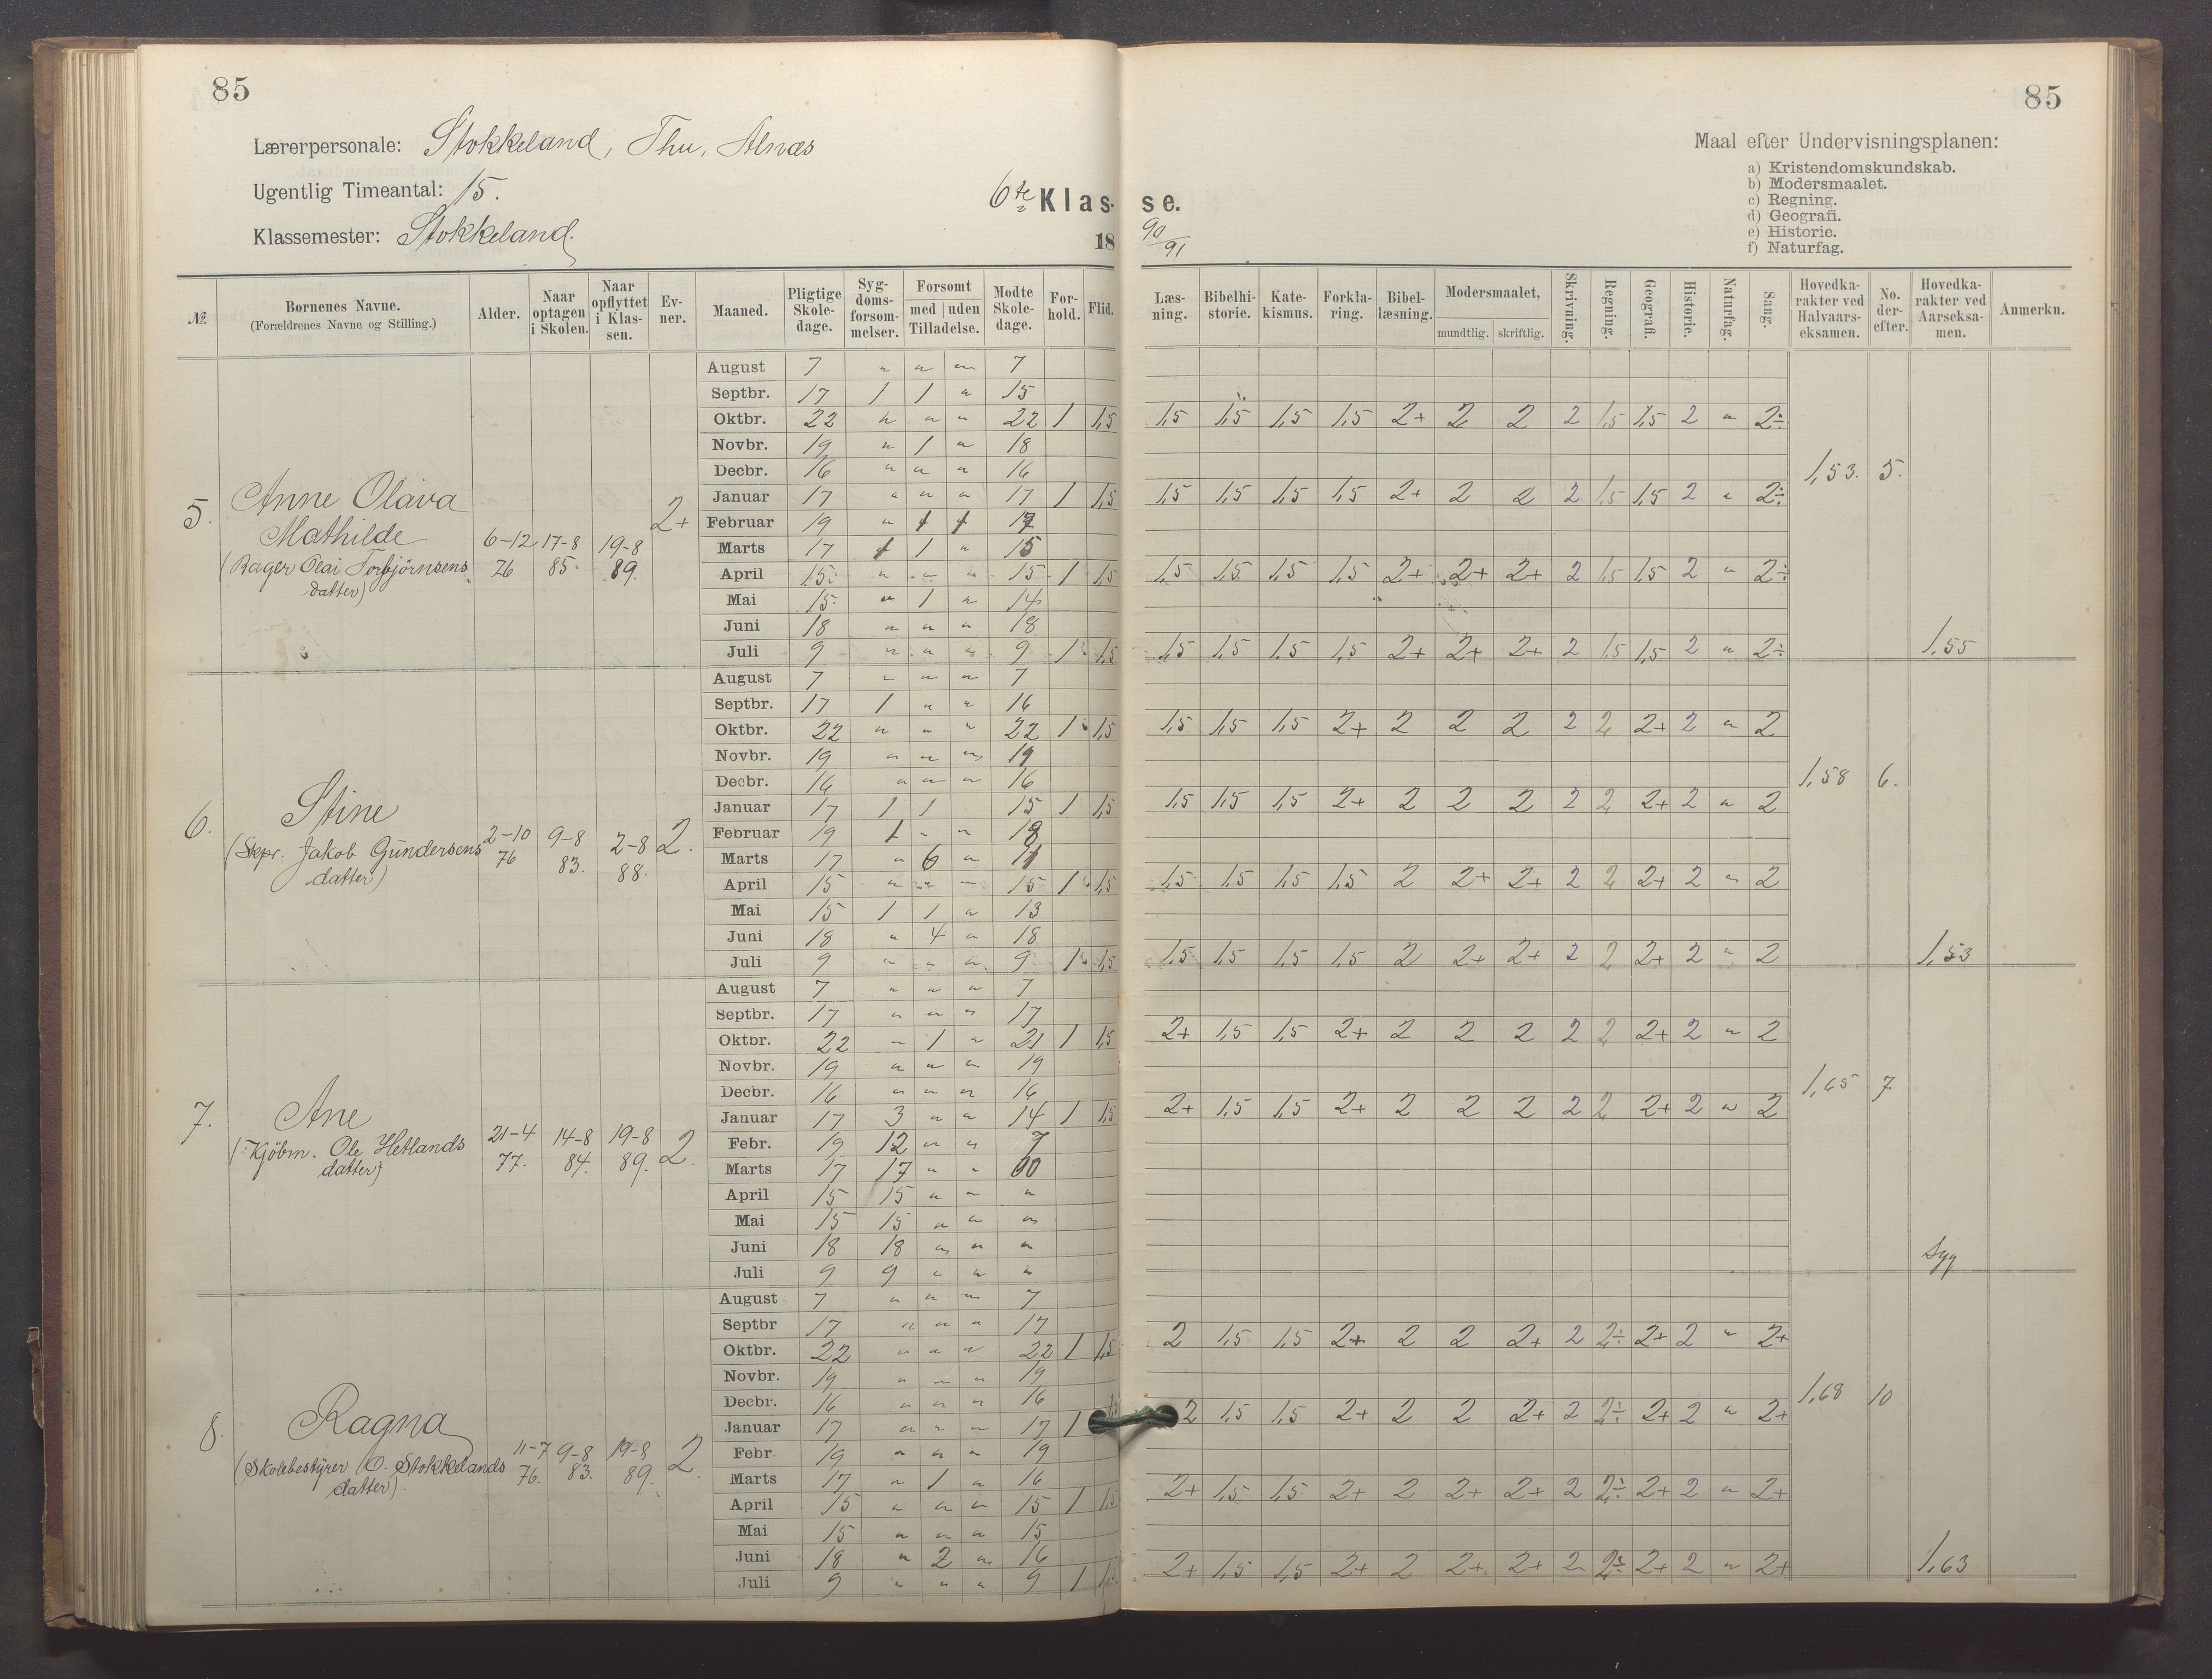 85
85
Lærerpersonale: Stokkeland, Thu, Alnæs
Ugentlig Timeantal: 15.
Klassemester: Stokkeland.
6te Klas- se.
18 90/91
Maal efter Undervisningsplanen:
a) Kristendomskundskab.
b) Modersmaalet.
c) Regning.
d) Geografi.
e) Historie.
f) Naturfag.
№. | Børnenes Navne. (Forældrenes Navne og Stilling.) | Alder. | Naar optagen i Skolen. | Naar opflyttet i Klas- sen. | Ev- ner. | Maaned. | Pligtige Skole- dage. | Syg- doms- forsøm- melser. | Forsømt med uden Tilladelse. | Mødte Skole- dage. | For- hold. | Flid. | Læs- ning. | Bibelhi- storie. | Kate- kismus. | Forkla- ring. | Bibel- læsning. | Modersmaalet, mundtlig. skriftlig. | Skrivning. | Regning. | Geografi. | Historie. | Naturfag. | Sang. | Hovedka- rakter ved Halvaars- eksamen. | No. der- efter. | Hovedka- rakter ved Aarseksa- men. | Anmerkn.
5. Anne Olava
Mathilde
(Bager Olai Torbjörnsens
datter)
6-12 76 | 17-8 85. | 19-8 89. | 2+
August 7 " " " 7
Septbr. 17 1 1 " 15
Oktbr. 22 " " " 22 1 1,5 | 1,5 1,5 1,5 1,5 2+ 2 2 2 1,5 1,5 2 " 2÷
Novbr. 19 " 1 " 18
Decbr. 16 " " " 16 | 1,53. 5.
Januar 17 " " " 17 1 1,5 | 1,5 1,5 1,5 1,5 2+ 2 2 2 1,5 1,5 2 " 2÷
Februar 19 " 1 1 17
Marts 17 1 1 " 15
April 15 " " " 15 1 1,5 | 1,5 1,5 1,5 1,5 2+ 2+ 2+ 2 1,5 1,5 2 " 2÷
Mai 15 " 1 " 14
Juni 18 " " " 18
Juli 9 " " " 9 1 1,5 | 1,5 1,5 1,5 1,5 2+ 2+ 2+ 2 1,5 1,5 2 " 2÷ | 1,55
6. Stine
(Skpr. Jakob Gundersens
datter)
2-10 76 | 9-8 83. | 2-8 88. | 2.
August 7 " " " 7
Septbr. 17 1 " " 16
Oktbr. 22 " " " 22 1 1,5 | 1,5 1,5 1,5 2+ 2 2 2 2 2 2+ 2 " 2
Novbr. 19 " " " 19
Decbr. 16 " " " 16 | 1,58 6.
Januar 17 1 1 15 1 1,5 | 1,5 1,5 1,5 2+ 2 2 2 2 2 2+ 2 " 2
Februar 19 1 " " 18
Marts 17 " 6 " 11
April 15 " " " 15 1 1,5 | 1,5 1,5 1,5 1,5 2 2+ 2+ 2 2 2+ 2 " 2
Mai 15 1 1 " 13
Juni 18 " 4 " 18
Juli 9 " " " 9 1 1,5 | 1,5 1,5 1,5 1,5 2 2+ 2+ 2 2 2+ 2 " 2 | 1,53
7. Ane
(Kjöbm. Ole Hetlands
datter)
21-4 77. | 14-8 84. | 19-8 89. | 2.
August 7 " " " 7
Septbr. 17 " " " 17
Oktbr. 22 " 1 " 21 1 1,5 | 2+ 1,5 1,5 2+ 2 2 2 2 2 2+ 2 " 2
Novbr. 19 " " " 19
Decbr. 16 " " " 16 | 1,65 7
Januar 17 3 " " 14 1 1,5 | 2+ 1,5 1,5 2+ 2 2 2 2 2 2+ 2 " 2
Febr. 19 12 " " 7
Marts 17 17 " " 00
April 15 15 " " "
Mai 15 15 " " "
Juni 18 18 " " "
Juli 9 9 " " " | Syg
8. Ragna
(Skolebestyrer O. Stokkelands
datter)
11-7 76. | 9-8 83. | 19-8 89. | 2.
August 7 " " " 7
Septbr 17 " " " 17
Oktbr. 22 " " " 22 1 1,5 | 2 1,5 1,5 2+ 2 2 2+ 2 2÷ 2+ 2 " 2+
Novbr. 19 " " " 19
Decbr. 16 " " " 16 | 1,68 10
Januar 17 " " " 17 1 | 2 1,5 1,5 2+ 2 2 2+ 2 2÷ 2+ 2 " 2+
Febr. 19 " " " 19
Marts 17 " 1 " 16
April 15 " " " 15 1 1,5 | 2+ 1,5 1,5 2+ 2 2+ 2+ 2 2÷ 2+ 2 " 2+
Mai 15 " " " 15
Juni 18 " 2 " 16
Juli 9 " " " 9 1 1,5 | 2+ 1,5 1,5 2+ 2 2+ 2+ 2 2÷ 2+ 2 " 2+ | 1,63